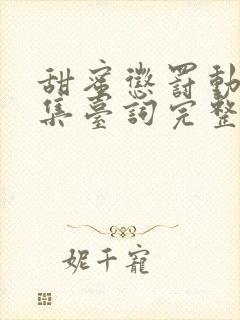 甜蜜懲罰動
集臺詞完整
妮千寵